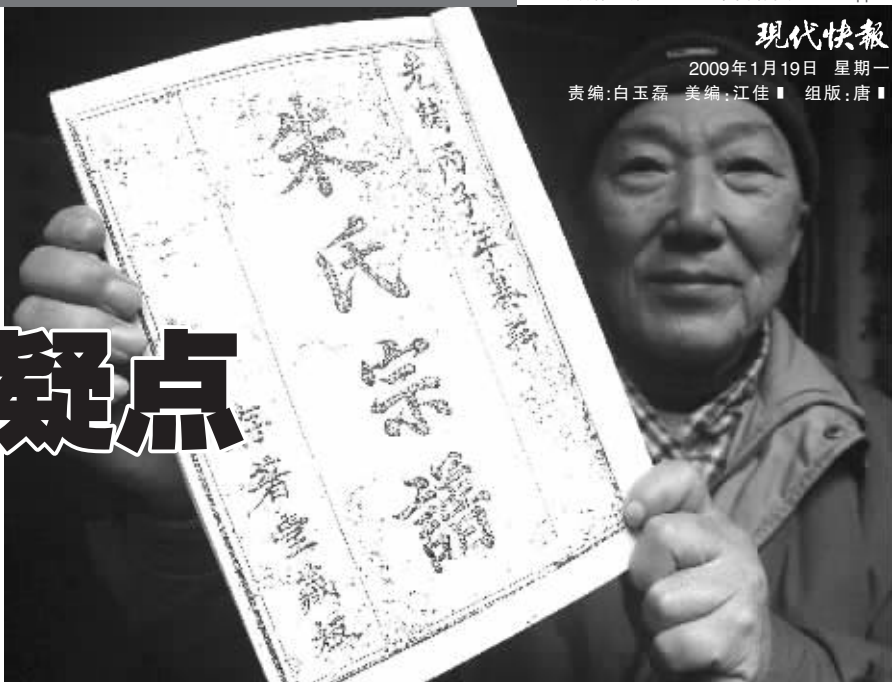 现代快報
2009年1月19日 星期一
责编:白玉磊 美编:江佳 组版:唐
疑点
光緒丙子年
朱氏宗譜
堂藏板